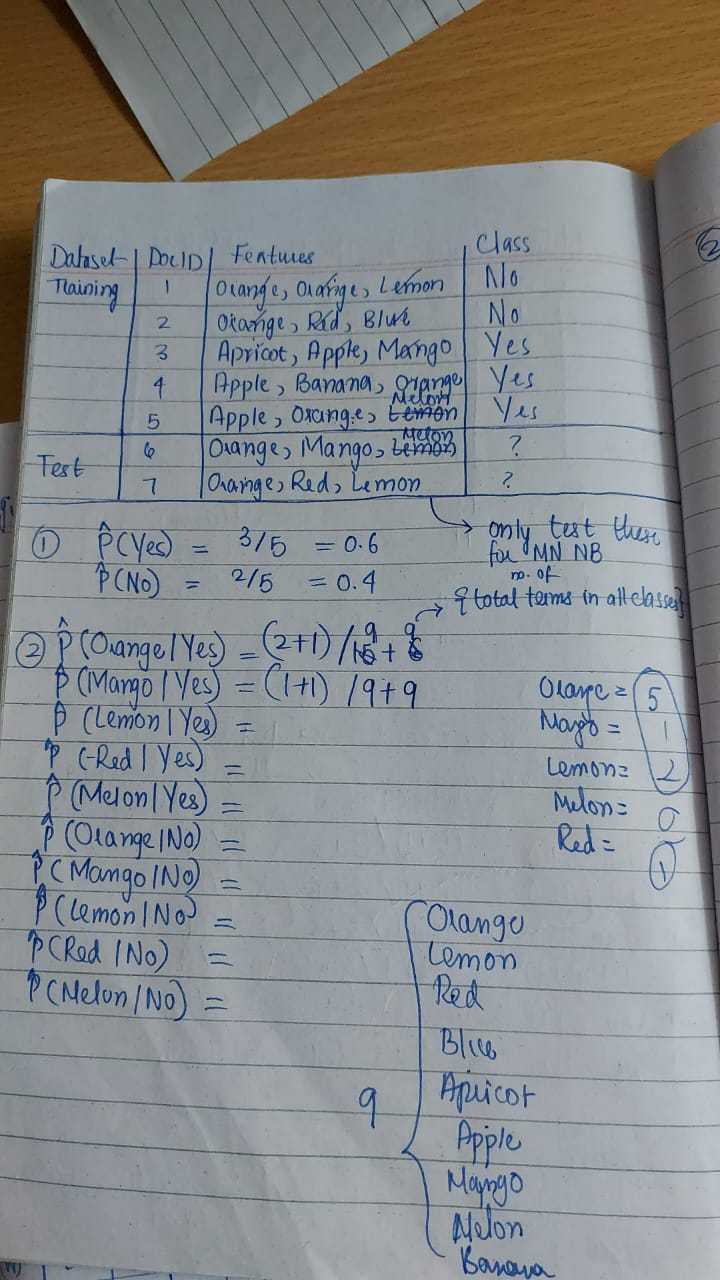 Dataset DocID Features Class
Training 1 Orange, Orange, Lemon No
2 Orange, Red, Blue No
3 Apricot, Apple, Mango Yes
4 Apple, Banana, Orange Yes
5 Apple, Orange, Lemon Melon Yes
Test 6 Orange, Mango, Lemon Melon ?
7 Orange, Red, Lemon ?
only test these
for MN NB
① P̂(Yes) = 3/5 = 0.6
P̂(No) = 2/5 = 0.4
no. of
{total terms in all classes}
② P̂(Orange|Yes) = (2+1) / 9 + 9
P̂(Mango|Yes) = (1+1) / 9+9
P̂(Lemon|Yes) =
P̂(Red|Yes) =
P̂(Melon|Yes) =
P̂(Orange|No) =
P̂(Mango|No) =
P̂(Lemon|No) =
P̂(Red|No) =
P̂(Melon/No) =
Orange = 5
Mango = 1
Lemon = 2
Melon = 0
Red = 1
9
Orange
Lemon
Red
Blue
Apricot
Apple
Mango
Melon
Banana
②